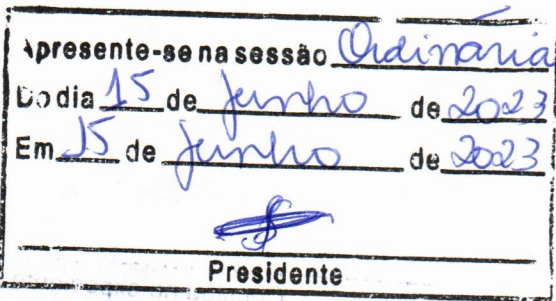 Apresente-se na sessão Ordinária
Do dia 15 de junho de 2023
Em 15 de junho de 2023
Presidente